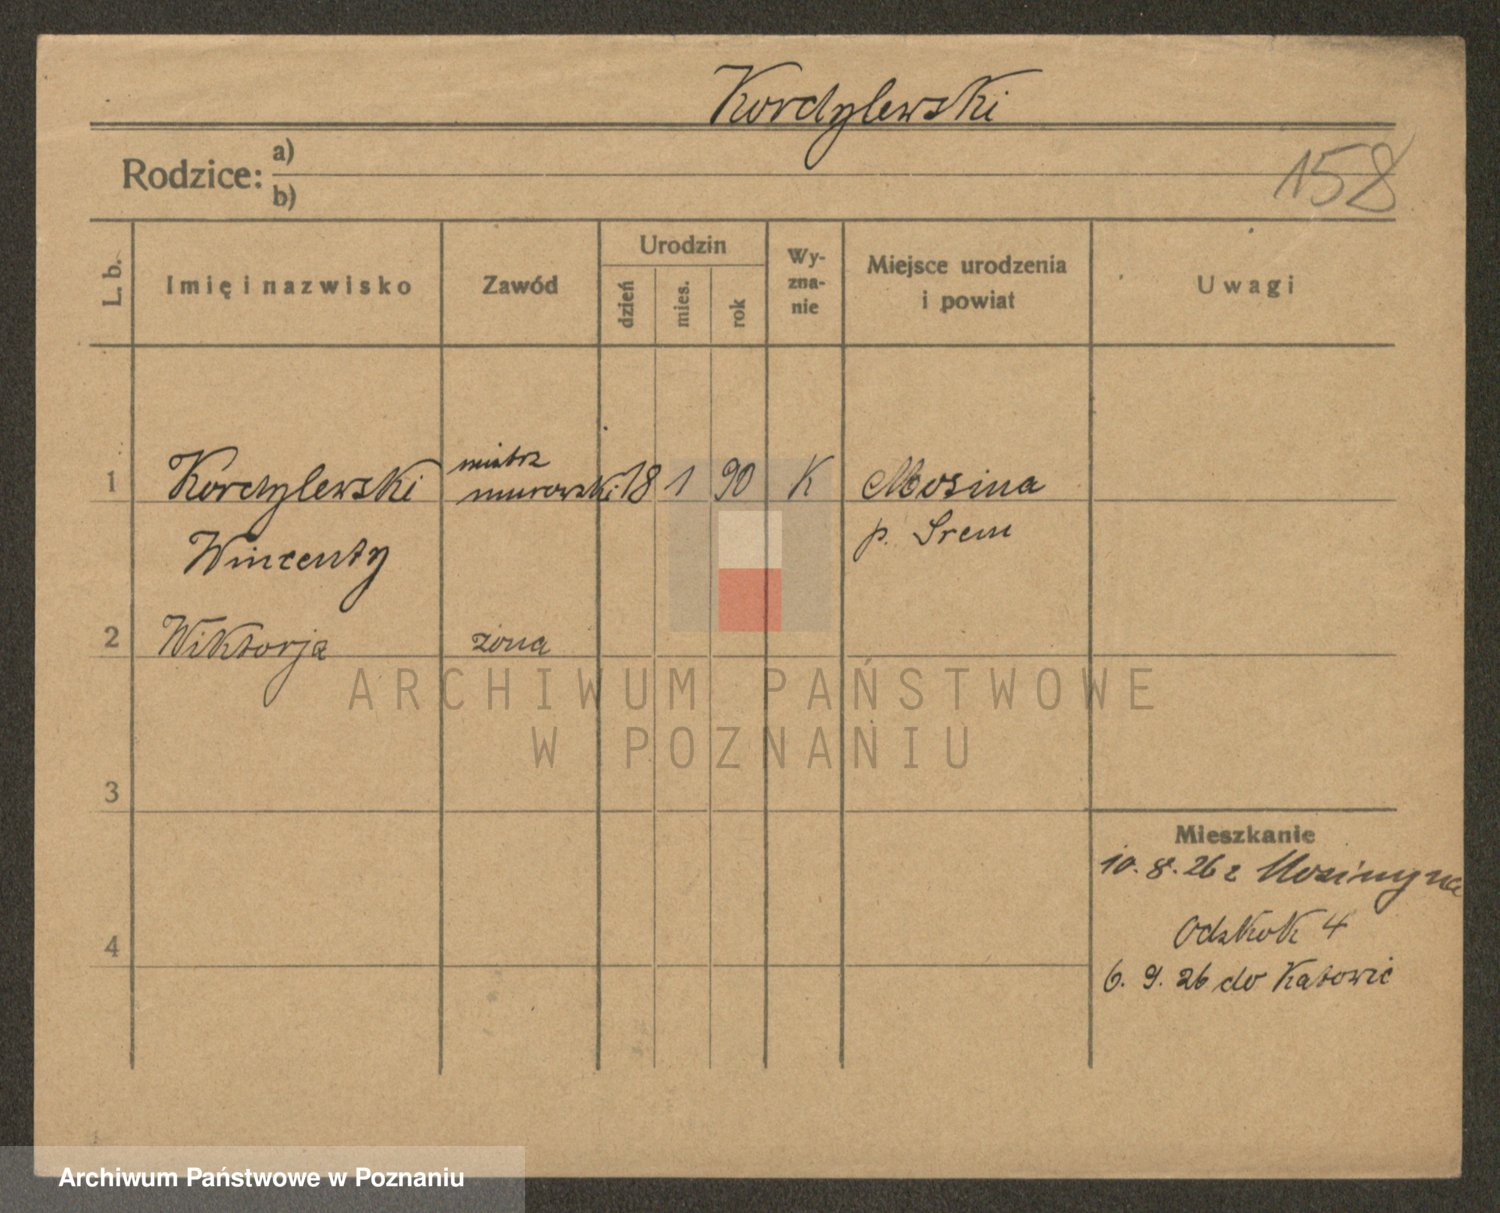 Kordylewski
158
Rodzice: a)
b)
L. b.
Imię i nazwisko
Zawód
Urodzin
dzień
mies.
rok
Wy-
zna-
nie
Miejsce urodzenia
i powiat
Uwagi
1 Kordylewski mistrz murowski 18 1 90 K Mosina
Wincenty p. Srem
2 Wiktorja żona
3
4
Mieszkanie
10. 8. 26 z Mosiny na
Odskok 4
6. 9. 26 do Katowic
ARCHIWUM PAŃSTWOWE
W POZNANIU
Archiwum Państwowe w Poznaniu